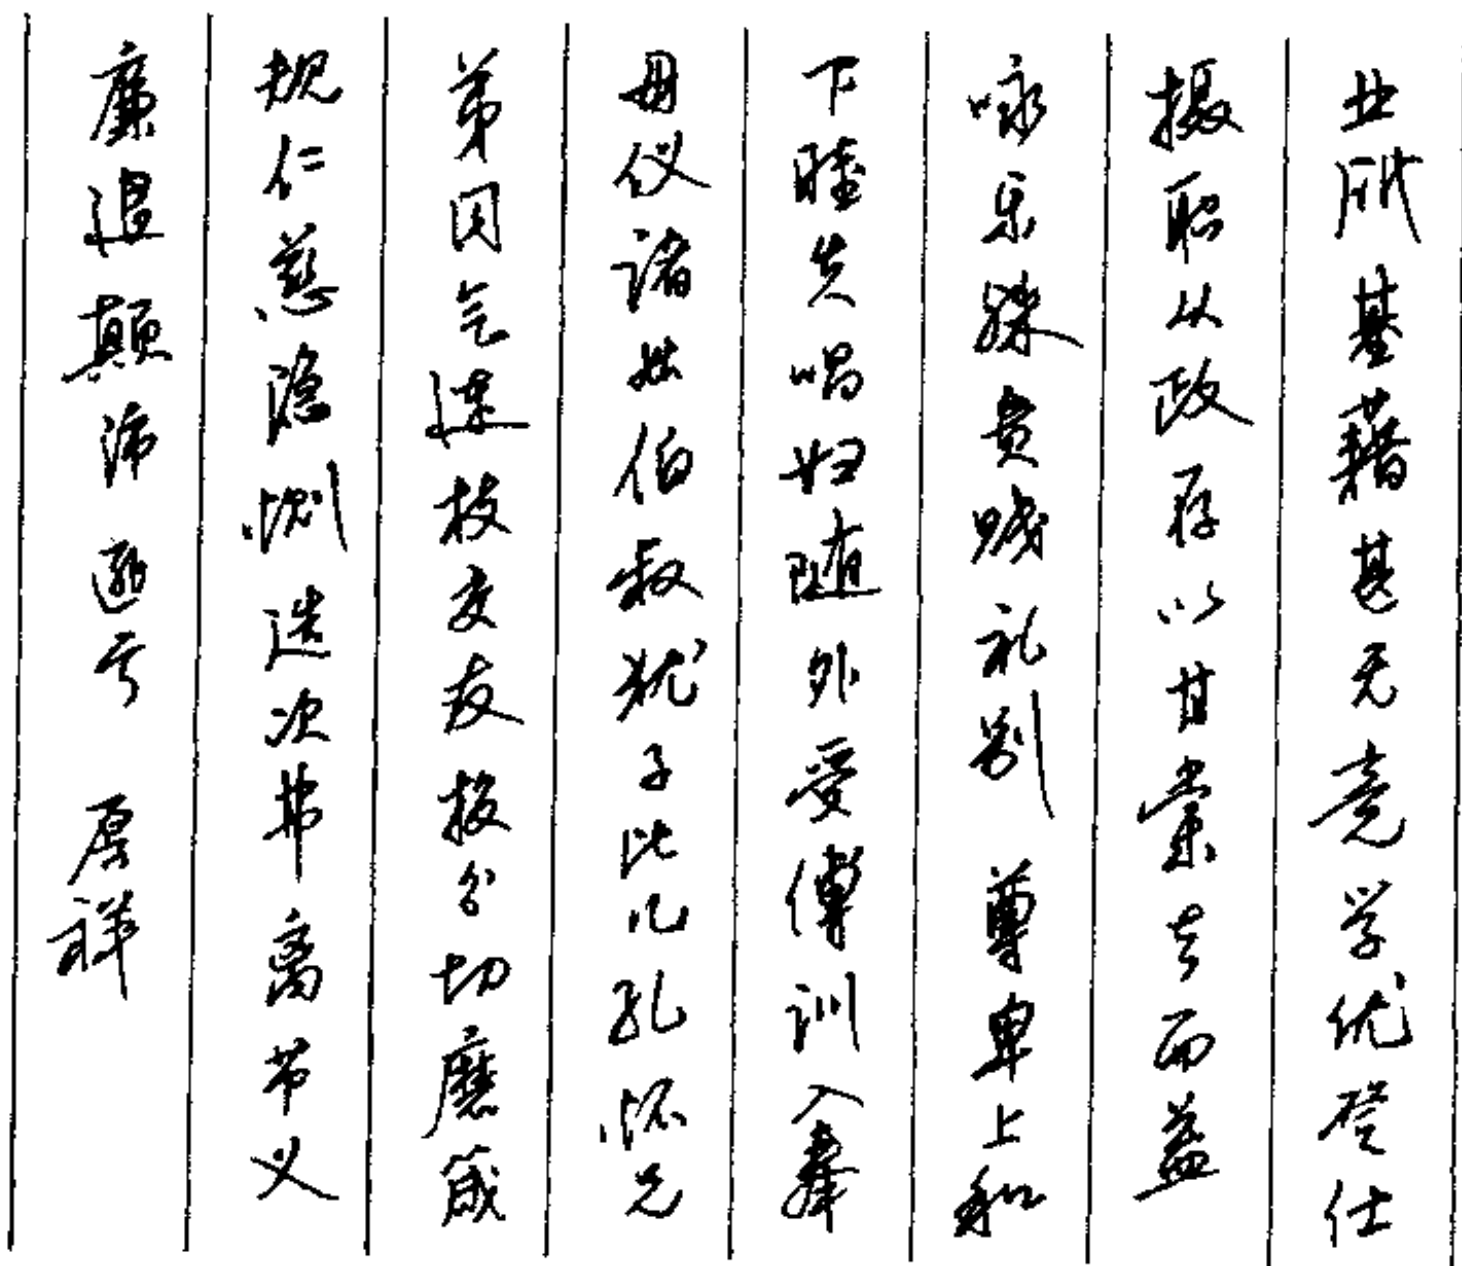 业所基藉甚无竟学优登仕
摄职从政存以甘棠去而益
咏乐殊贵贱礼别尊卑上和
下睦夫唱妇随外受傅训入奉
母仪诸姑伯叔犹子比儿孔怀兄
弟因气连枝交友投分切磨箴
规仁慈隐恻造次弗离节义
廉退颠沛匪亏 厚祥